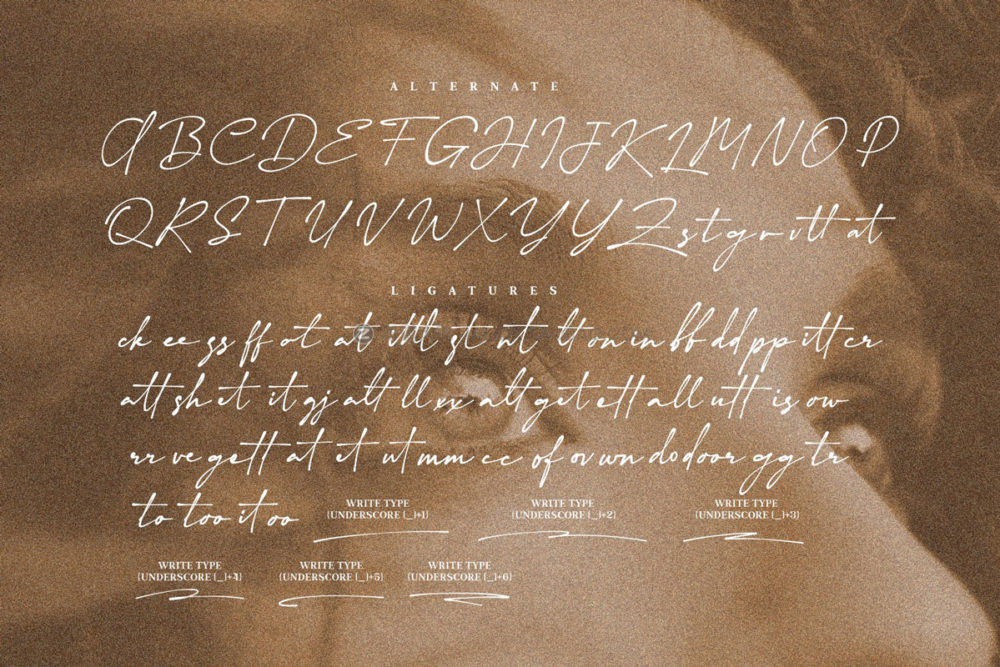 ALTERNATE
A B C D E F G H I J K L M N O P
Q R S T U V W X Y Y Z s t g r v itt at
LIGATURES
ck ee gs ff ot at ittl st nt lt on in bb dd pp itt cr
att sh et it gj alt ll xx alt get ett all utt is ow
rr ve gett at et ut mm cc of ov wn do door gg tr
to too it oo
WRITE TYPE
(UNDERSCORE (_)+1)
WRITE TYPE
(UNDERSCORE (_)+2)
WRITE TYPE
(UNDERSCORE (_)+3)
WRITE TYPE
(UNDERSCORE (_)+4)
WRITE TYPE
(UNDERSCORE (_)+5)
WRITE TYPE
(UNDERSCORE (_)+6)